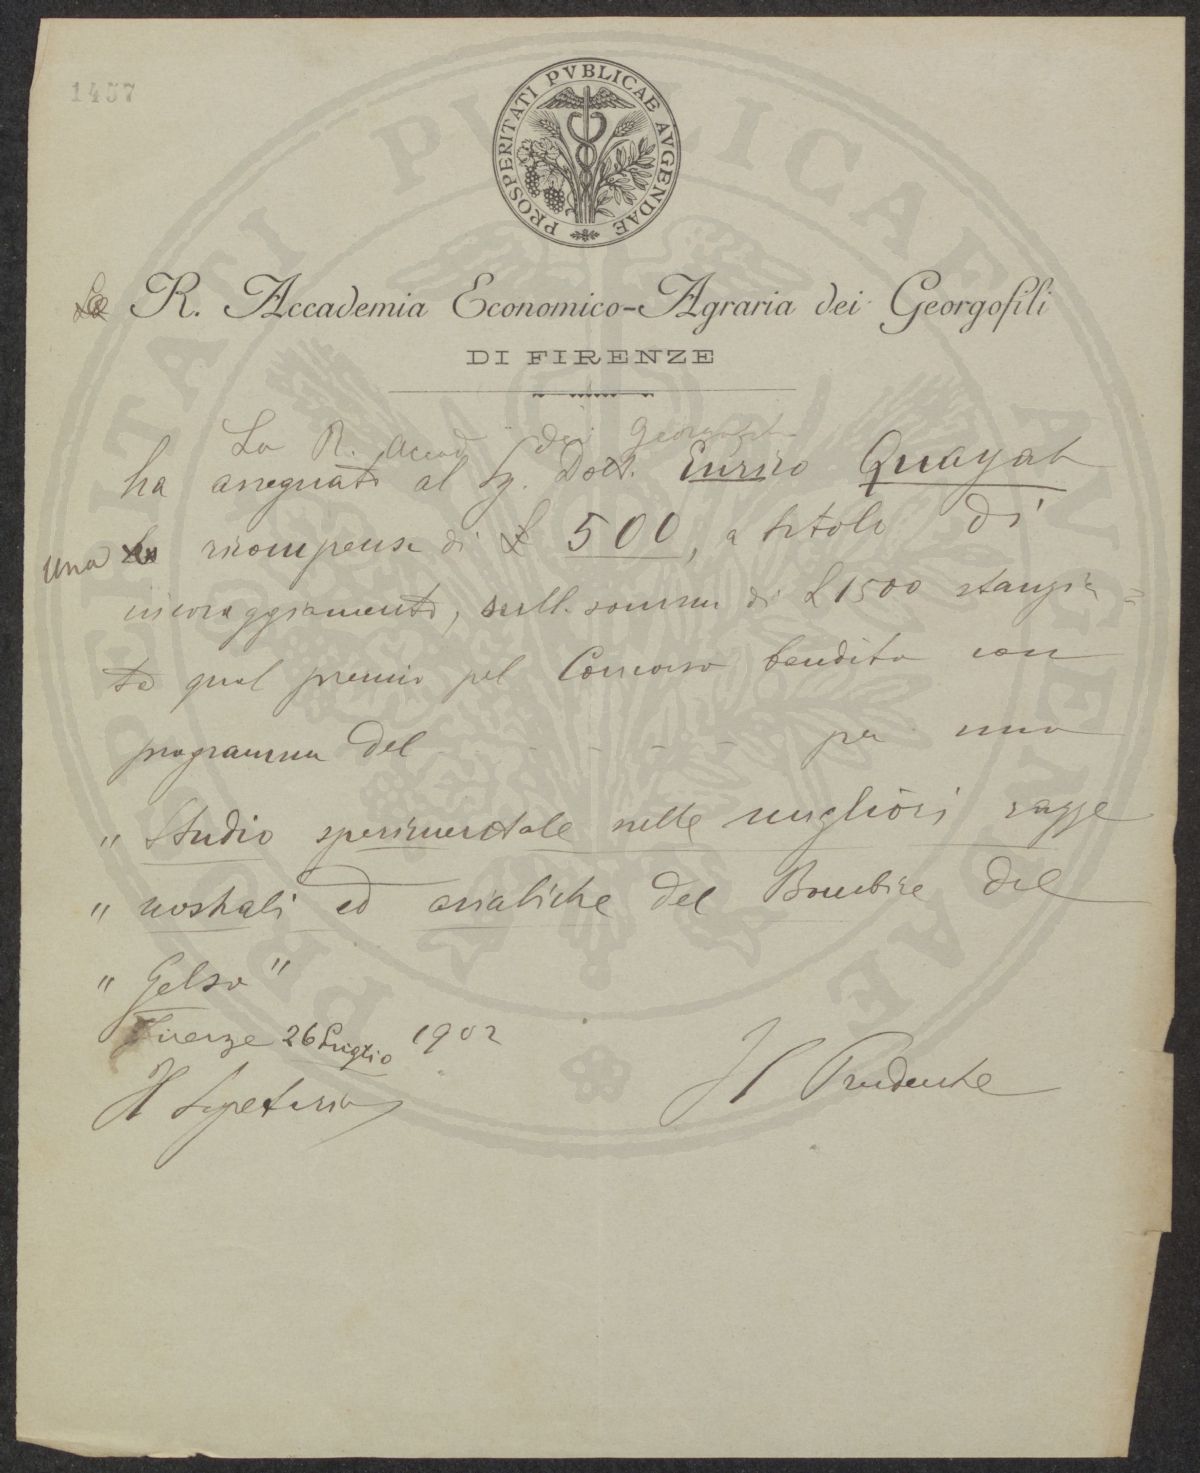 1457
PROSPERITATI PVBLICAE AVGENDAE
R. Accademia Economico-Agraria dei Georgofili
DI FIRENZE
La R. Accad dei Georgofili
ha assegnato al Sg. Dott. Enrico Quajat
una ricompensa di £ 500, a titolo di
incoraggiamento, sulla somma di £ 1500 stanzia=
ta qual premio pel Concorso bandito con
programma del - - - - - per uno
" Studio sperimentale nelle migliori razze
" nostrali ed asiatiche del Bombice del
" Gelso "
Firenze 26 Luglio 1902
Il Segretario Il Presidente